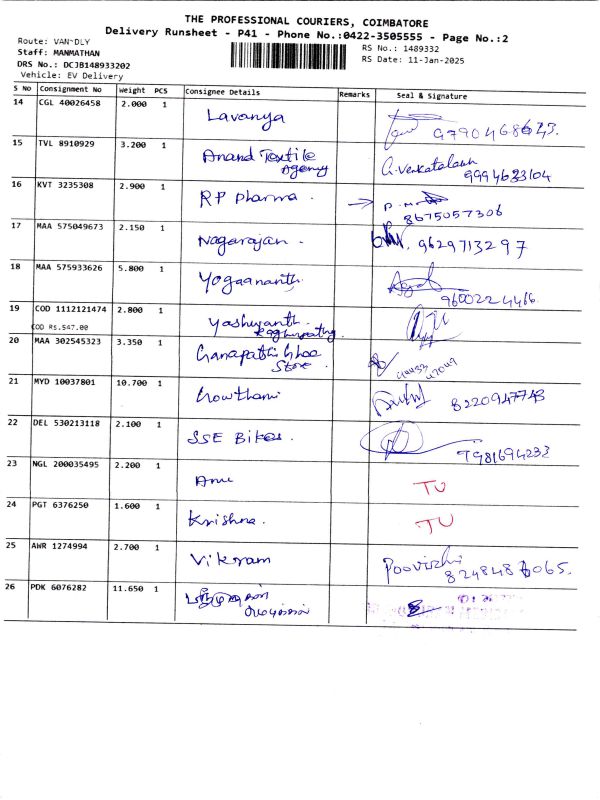 THE PROFESSIONAL COURIERS, COIMBATORE
Delivery Runsheet - P41 - Phone No.:0422-3505555 - Page No.:2
Route: VAN-DLY
RS No.: 1489332
Staff: MANMATHAN
RS Date: 11-Jan-2025
DRS No.: DCJB148933202
Vehicle: EV Delivery
S No Consignment No Weight PCS Consignee Details Remarks Seal & Signature
14 CGL 40026458 2.000 1 Lavanya 9790468643
15 TVL 8910929 3.200 1 Anand Textile Agency A.Venkatalaxh 9994633104
16 KVT 3235308 2.900 1 RP pharma. 8675057306
17 MAA 575049673 2.150 1 Nagarajan. 9629713297
18 MAA 575933626 5.800 1 Yogaananth. 9600224466.
19 COD 1112121474 2.800 1 Yashwanth Raghupathy
COD Rs.547.00
20 MAA 302545323 3.350 1 Ganapathi Ghee Store
21 MYD 10037801 10.700 1 Gowthami 8220947743
22 DEL 530213118 2.100 1 SSE Bikes. 7981694233
23 NGL 200035495 2.200 1 TU
24 PGT 6376250 1.600 1 Krishna. TU
25 AWR 1274994 2.700 1 Vikram Poovizhi 8248486065.
26 PDK 6076282 11.650 1